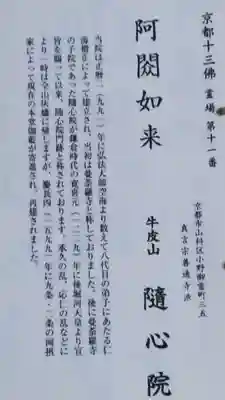 京都十三佛霊場第十一番
阿閦如来
京都市山科区小野御霊町三五
真言宗善通寺派
牛皮山 隨心院
当院は正暦二(九九一)年に弘法大師空海より数えて八代目の弟子にあたる仁
海僧正によって建立され、当初は曼荼羅寺と称しておりました。後に曼荼羅寺
の子院であった隨心院が鎌倉時代の寛喜元(一二二九)年に後堀河天皇より宣
旨を賜って以来、隨心院門跡と称されております。承久の乱、応仁の乱などに
より一時は全山灰燼に帰しますが、慶長四(一五九九)年に九条・二条の両摂
家によって現在の本堂伽藍が寄進され、再建されました。